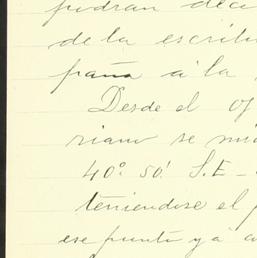 podrán deci
de la escritu
paña á la
Desde el oj
riano se mi
40º 50' S.E -
teniendose el p
ese punto ya a